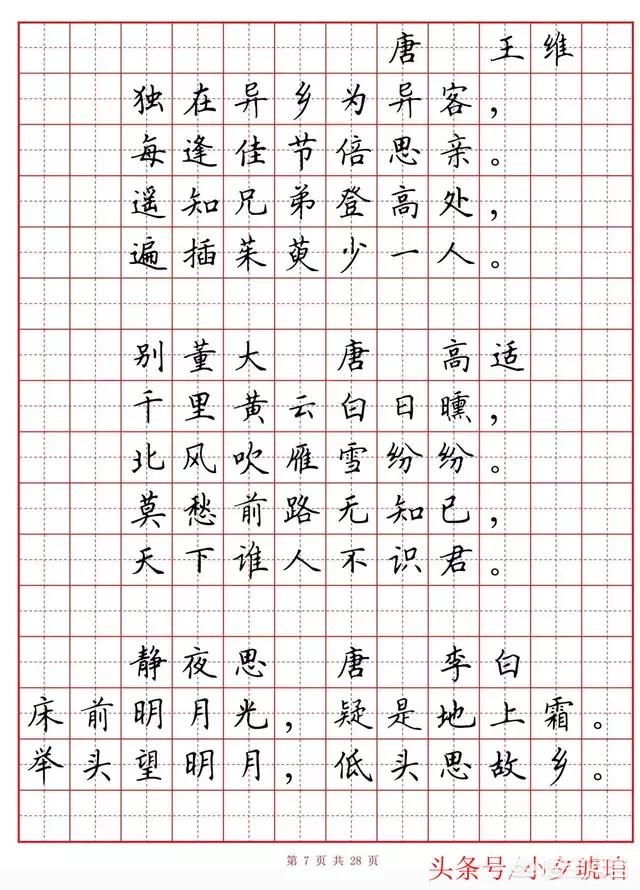 唐 王维
独在异乡为异客，
每逢佳节倍思亲。
遥知兄弟登高处，
遍插茱萸少一人。
别董大 唐 高适
千里黄云白日曛，
北风吹雁雪纷纷。
莫愁前路无知已，
天下谁人不识君。
静夜思 唐 李白
床前明月光，疑是地上霜。
举头望明月，低头思故乡。
第 7 页 共 28 页
头条号/小夕琥珀